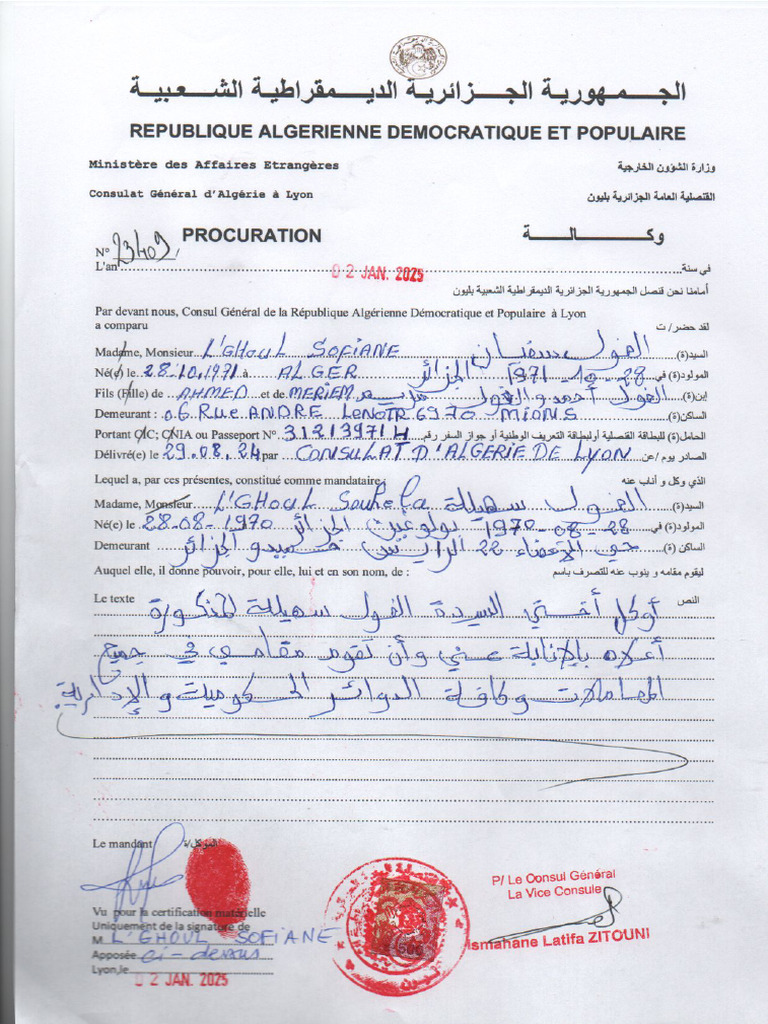 الجـمـهورية الجـزائرية الديـمقراطية الشـعبيـة
REPUBLIQUE ALGERIENNE DEMOCRATIQUE ET POPULAIRE
Ministère des Affaires Etrangères وزارة الشؤون الخارجية
Consulat Général d'Algérie à Lyon القنصلية العامة الجزائرية بليون
PROCURATION وكـــالـــة
N° 23409
L'an 02 JAN. 2025 في سنة
أمامنا نحن قنصل الجمهورية الجزائرية الديمقراطية الشعبية بليون
Par devant nous, Consul Général de la République Algérienne Démocratique et Populaire à Lyon
a comparu لقد حضر/ ت
Madame, Monsieur L'GHOUL SOFIANE الغول سفيان السيد(ة)
Né(e) le 28.10.1971 à ALGER الجزائر 1971-10-28 المولود(ة) في
Fils (Fille) de AHMED et de MERIEM الغول أحمد و الغول مريم إبن(ة)
Demeurant : 06 Rue ANDRE LENOTR 6970 MIONS الساكن(ة)
Portant CIC; CNIA ou Passeport N° 312139714 الحامل(ة) للبطاقة القنصلية أولبطاقة التعريف الوطنية أو جواز السفر رقم
Délivré(e) le 29.08.24 par CONSULAT D'ALGERIE DE LYON الصادر يوم /عن
Lequel a, par ces présentes, constitué comme mandataire الذي وكل و أناب عنه
Madame, Monsieur L'GHOUL Souhela الغول سهيلة السيد(ة)
Né(e) le 28-08-1970 بولوغين الجزائر 1970-08-28 المولود(ة) في
Demeurant حي الأعضاء 22 الرايس حميدو الجزائر الساكن (ة)
Auquel elle, il donne pouvoir, pour elle, lui et en son nom, de : ليقوم مقامه و ينوب عنه للتصرف باسم
Le texte أوكل أختي السيدة الغول سهيلة المذكورة النص
أعلاه بالإنابة عني وأن تقوم مقامي في جميع
المعاملات وكافة الدوائر الحكومية و الإدارية
Le mandant الموكل/ة
P/ Le Consul Général
La Vice Consule
Ismahane Latifa ZITOUNI
Vu pour la certification matérielle
Uniquement de la signature de
M L'GHOUL SOFIANE
Apposée ci-dessus
Lyon,le 02 JAN. 2025